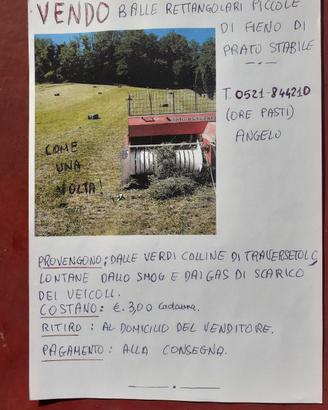 VENDO BALLE RETTANGOLARI PICCOLE
DI FIENO DI
PRATO STABILE
T. 0521-844210
(ORE PASTI)
ANGELO
COME
UNA
VOLTA!
PROVENGONO: DALLE VERDI COLLINE DI TRAVERSETOLO
LONTANE DALLO SMOG E DAI GAS DI SCARICO
DEI VEICOLI.
COSTANO: €.3,00 Cadauna.
RITIRO : AL DOMICILIO DEL VENDITORE.
PAGAMENTO : ALLA CONSEGNA.